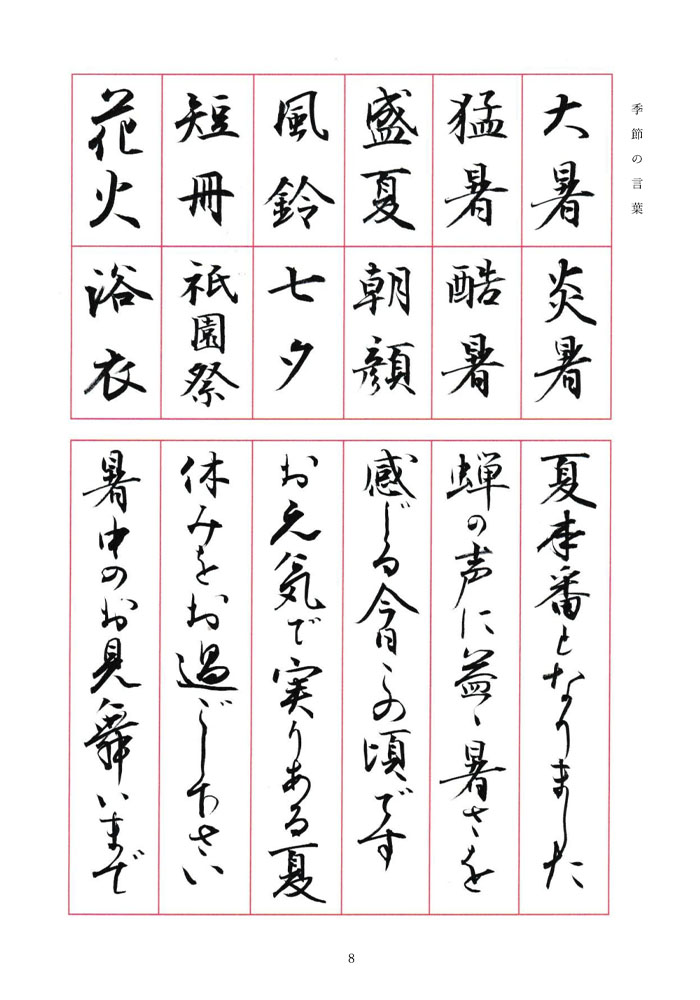 季節の言葉
大暑
猛暑
盛夏
風鈴
短冊
花火
炎暑
酷暑
朝顔
七夕
祇園祭
浴衣
夏本番となりました
蝉の声に益々暑さを
感じる今日この頃です
お元気で実りある夏
休みをお過ごし下さい
暑中のお見舞いまで
8